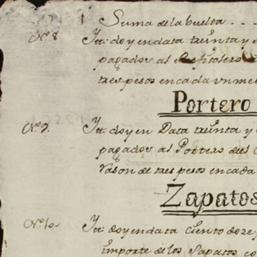 Suma de la buelta - - -
N.º 8. Itt. doy en data treinta y
pagados al Refitolero
tres pesos en cada un mes
Portero
N.º 9. Itt. doy en Data treinta y
pagados al Portero del
rason de tres pesos en cada
Zapatos
N.º 10. Itt. doy en data ciento
importe de los Sapatos